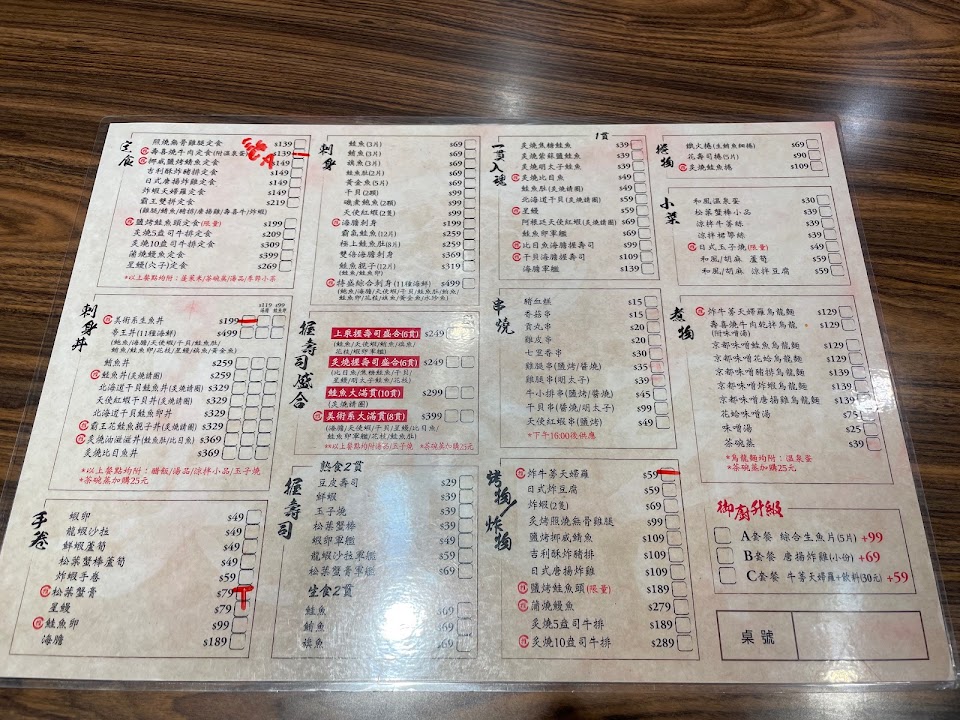 定食
照燒無骨雞腿定食 $139
壽喜燒牛肉定食(附溫泉蛋) $139
挪威鹽烤鯖魚定食 $149
吉利酥炸豬排定食 $149
日式唐揚炸雞定食 $149
炸蝦天婦羅定食 $149
霸王雙拼定食 $219
(雞腿/鯖魚/豬排/唐揚雞/壽喜牛/炸蝦)
鹽烤鮭魚頭定食(限量) $199
炙燒5盎司牛排定食 $209
炙燒10盎司牛排定食 $309
蒲燒鰻魚定食 $399
星鰻(穴子)定食 $269
刺身丼
$119 海膽
$99 鮭魚卵
美術系生魚丼 $199
帝王丼(11種海鮮) $499
鮪魚丼 $259
鮭魚丼(炙燒請圈) $259
北海道干貝鮭魚丼(炙燒請圈) $329
天使紅蝦干貝丼(炙燒請圈) $329
北海道干貝鮭魚卵丼 $329
霸王花鮭魚親子丼(炙燒請圈) $369
炙燒油滋滋丼(鮭魚肚/比目魚) $369
鮭魚肚比目魚丼 $369
*以上餐點均附：醋飯/湯品/涼拌小品/玉子燒
*茶碗蒸加購25元
手卷
蝦卵 $49
龍蝦沙拉 $49
鮮蝦蘆筍 $49
松葉蟹棒蘆筍 $49
炸蝦手卷 $59
松葉蟹膏 $79
星鰻 $79
鮭魚卵 $99
海膽 $189
刺身
鮭魚(3片) $69
鮪魚(3片) $69
旗魚(3片) $69
鮭魚肚(2片) $69
黃金魚(5片) $69
干貝(2顆) $99
磯煮鮑魚(2顆) $99
天使紅蝦(2隻) $99
海膽刺身 $199
霸氣鮭魚(12片) $259
極上鮭魚肚(8片) $259
雙倍海膽刺身 $369
鮭魚親子(12片) $319
(鮭魚/鮭魚卵)
特盛綜合刺身(11種海鮮) $499
握壽司盛合
上泉握壽司盛合(6貫) $249
炙燒握壽司盛合(6貫) $249
鮭魚大滿貫(10貫) $299
(炙燒請圈)
美術系大滿貫(8貫) $399
握壽司
熟食2貫
豆皮壽司 $29
鮮蝦 $39
玉子燒 $39
松葉蟹棒 $39
蝦卵軍艦 $49
龍蝦沙拉軍艦 $49
松葉蟹膏軍艦 $69
生食2貫
鮭魚 $69
鮪魚 $69
旗魚 $69
一貫入魂
1貫
炙燒焦糖鮭魚 $39
炙燒紫蘇鹽鮭魚 $39
炙燒明太子鮭魚 $39
炙燒比目魚 $49
鮭魚肚(炙燒請圈) $49
北海道干貝(炙燒請圈) $59
星鰻 $59
阿根廷天使紅蝦(炙燒請圈) $69
鮭魚卵軍艦 $69
比目魚海膽握壽司 $99
干貝海膽握壽司 $109
海膽軍艦 $139
串燒
豬血糕 $15
香菇串 $15
貢丸串 $20
雞皮串 $20
七里香串 $30
雞腿串(鹽烤/醬燒) $35
雞腿串(明太子) $39
牛小排串(鹽烤) $45
干貝串(醬燒/明太子) $99
天使紅蝦串(鹽烤) $49
*下午16:00後供應
烤物/炸物
炸牛蒡天婦羅 $59
日式炸豆腐 $59
炸蝦(2隻) $69
炙烤照燒無骨雞腿 $99
鹽烤挪威鯖魚 $109
吉利酥炸豬排 $109
日式唐揚炸雞 $109
鹽烤鮭魚頭(限量) $189
蒲燒鰻魚 $279
炙燒5盎司牛排 $189
炙燒10盎司牛排 $289
捲物
鐵火捲(生鮪魚細捲) $69
花壽司捲(5片) $90
炙燒鮭魚捲 $109
小菜
和風溫泉蛋 $30
松葉蟹小品 $39
涼拌牛蒡絲 $39
涼拌裙帶絲 $39
日式玉子燒(限量) $49
和風/胡麻 蘆筍 $59
和風/胡麻 涼拌豆腐 $59
煮物
炸牛蒡天婦羅烏龍麵 $129
壽喜燒牛肉乾拌烏龍麵 $129
(附味噌湯)
京都味噌鮭魚烏龍麵 $129
京都味噌花蛤烏龍麵 $129
京都味噌豬排烏龍麵 $139
京都味噌炸蝦烏龍麵 $139
京都味噌唐揚雞烏龍麵 $139
花蛤味噌湯 $75
味噌湯 $25
茶碗蒸 $39
*烏龍麵均附：溫泉蛋
*茶碗蒸加購25元
御廚升級
A套餐 綜合生魚片(5片) +99
B套餐 唐揚炸雞(小份) +69
C套餐 牛蒡天婦羅+飲料(30元) +59
桌號